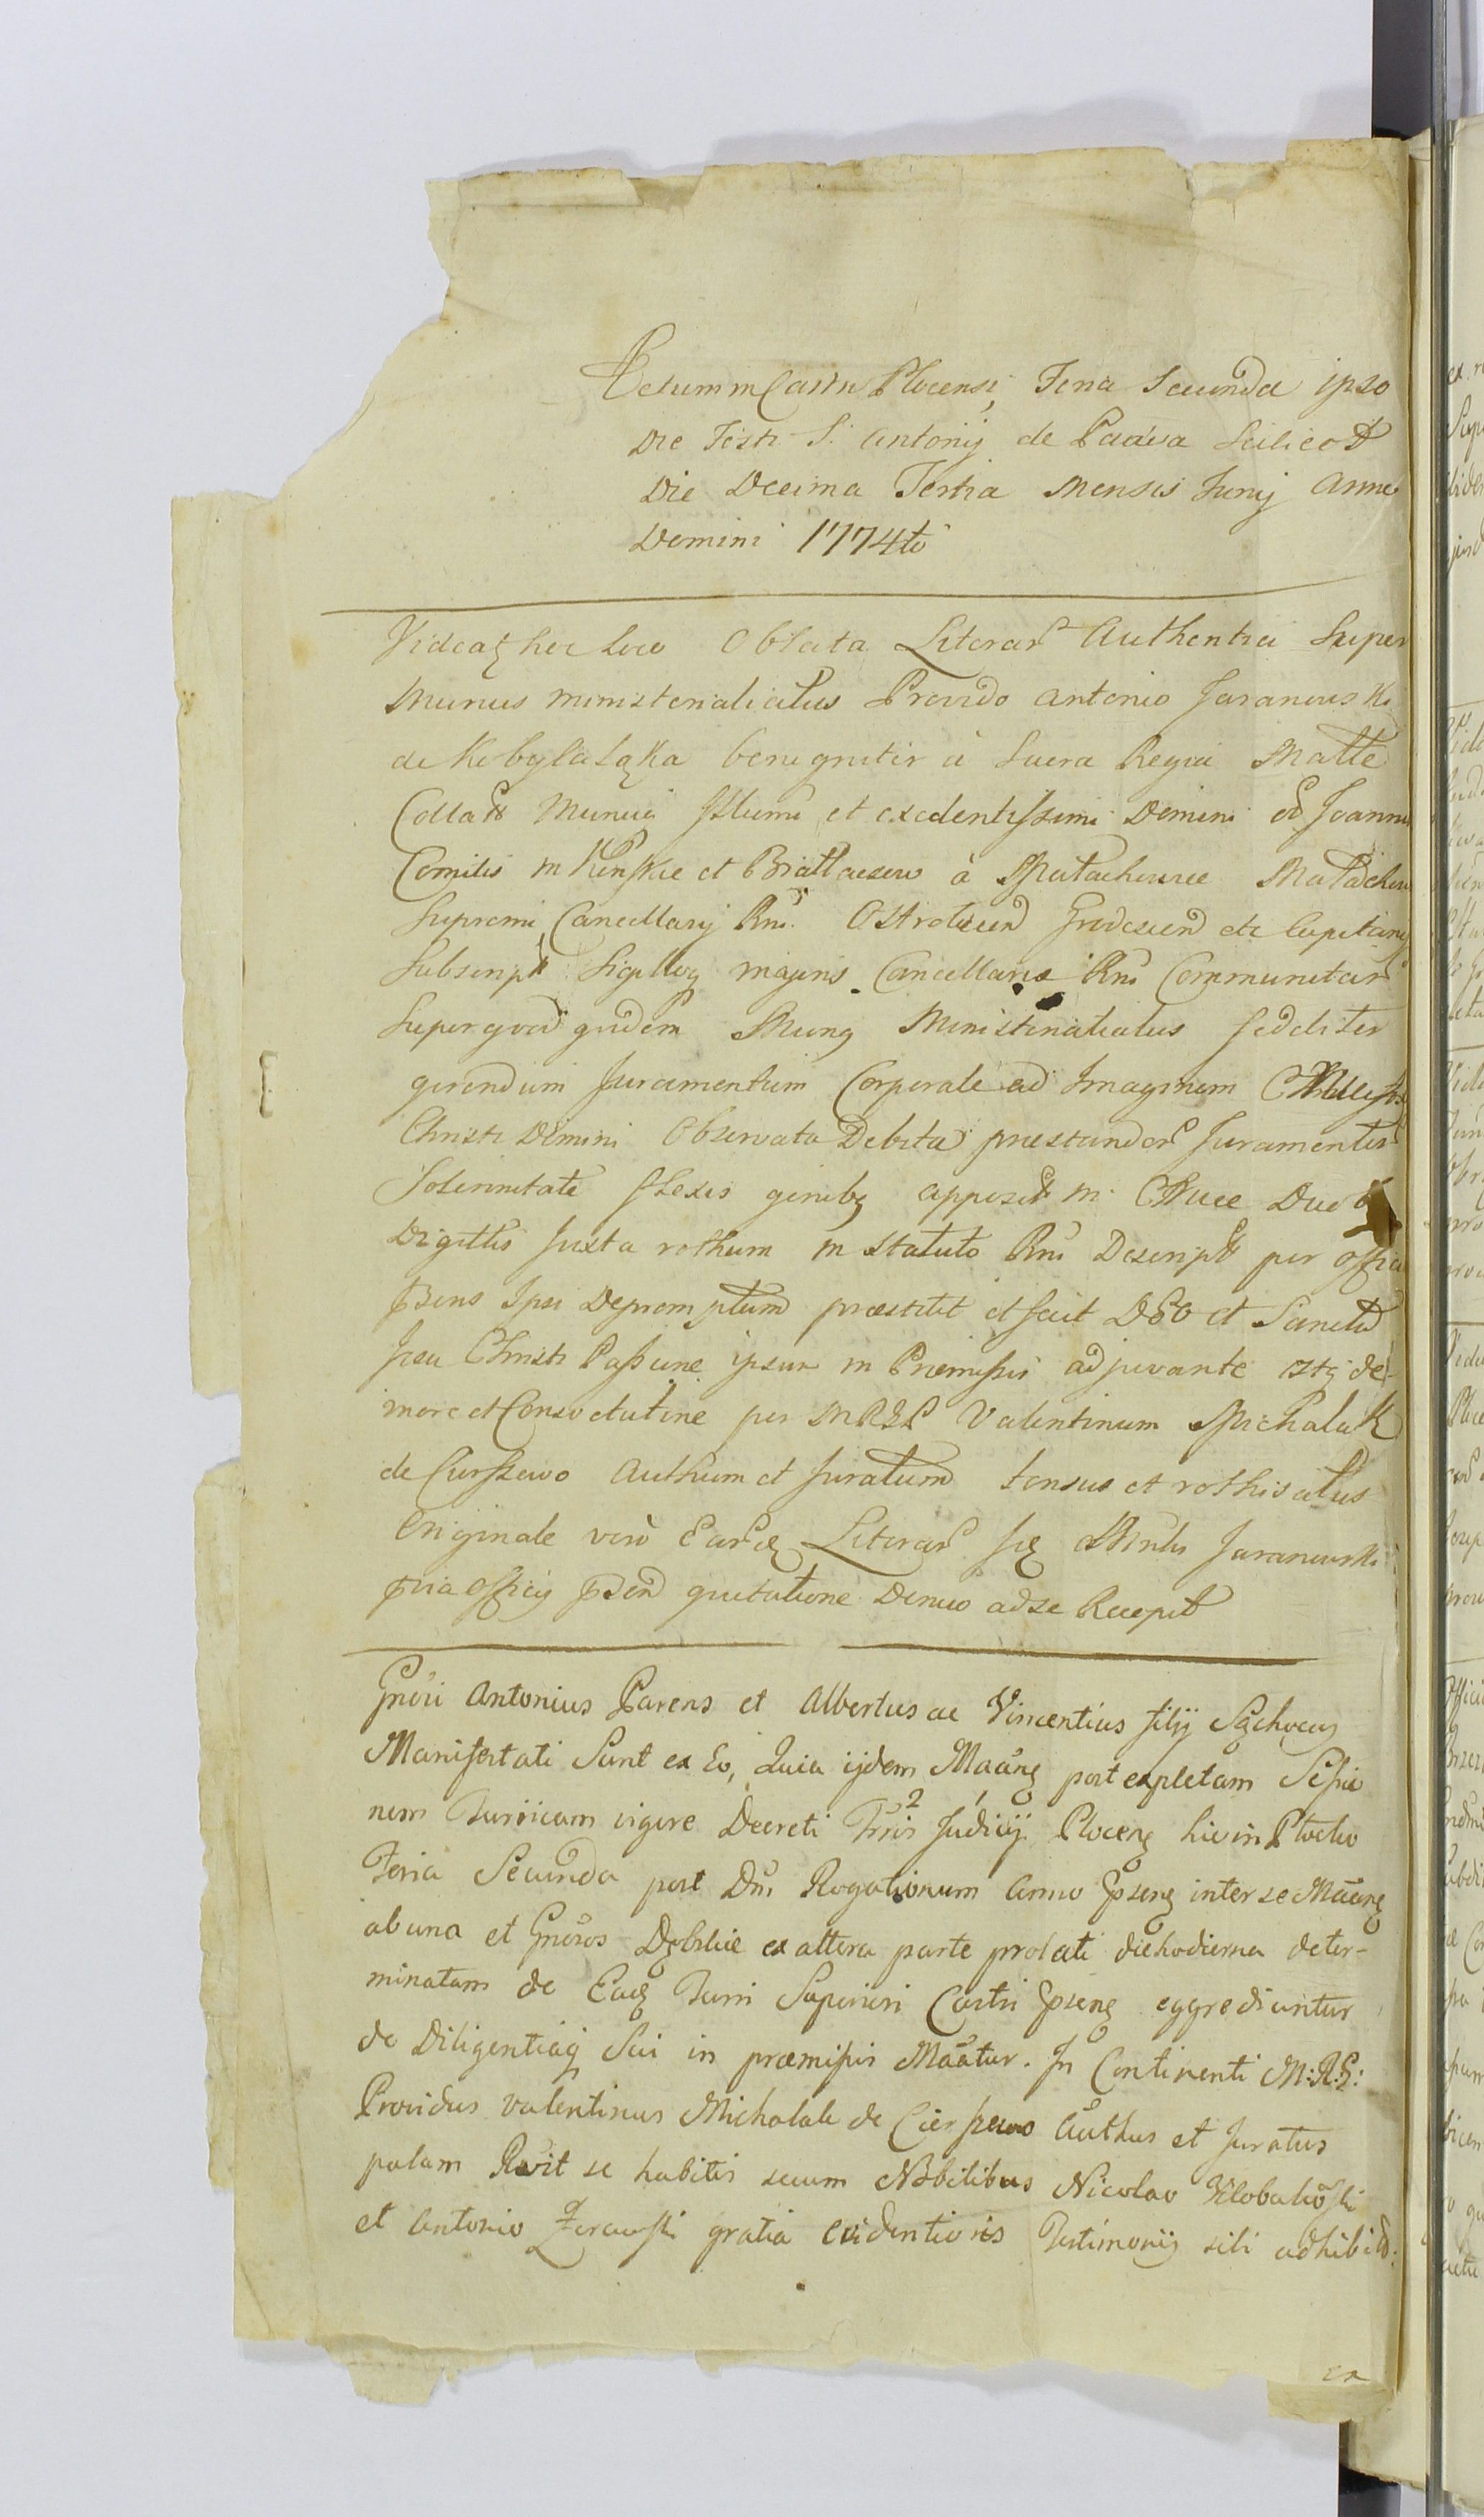 Actum in Castro Plocensi, Feria Secunda ipso
Die Festi S. Antonij de Padva Scilicet
Die Decima Tertia Mensis Junij Anno
Domini 1774to
Videatz hoc loco Oblata Literarͫ Authentica Super
Munus ministerialiatus Provido Antonio Jaranowski
de Kobylałąka benigniter à Sacra Regia Matte
Collatͫ Manu Illumi et excellentissimi Domini Joannis
Comitis in Końskie et Białłaczew à Małachowice Małachow
Supremi Cancellarij Rni. Ostroliceñ Grodeceñ etc Capitanij
Subscriptͫ Sigilloqz majoris Cancellariæ Rni Communitarͫ
Super quod quidem Munq Ministerialiatus fideliter
gerendum Juramentum Corporale ad Imaginem Crucifixi
Christi Domini Observata Debita præstandorͫ Juramentorͫ
Solennitate flexis genibq appositͫ in Cruce Duobq
Digittis Juxta rothum in Statuto Rni Descriptͫ per Officiũ
p̃sens Ipsi Depromptum præstitit et fecit Deo et Sancta
Jesu Christi Passione ipsum in Præmissis adjuvante estq de
more et Consvetutine per MRGP Valentinum Michalak
de Cierszewo Authum et Juratum tonsus et rothisatus
Originale verò Earq Literarͫ Jq Minlis Jaranowski
p̃via Officij p̃señ quitatione Denuo ad se Recepit
Gnõsi Antonius Parens et Albertus ac Vincentius filij Sąchoccy
Manifestati Sunt ex Eo, Quia ijdem Mãang post expletam Sessio
nem Turricam vigore Decreti Trris 2 Judicij 1 Ploceng hic in Plocko
Feria Secunda post Dni Rogationum Anno p̃seng inter se Mãang
ab una et Gnõsos Dębskie ex altera parte prolati die hodierna deter-
minatam de Eaq Turri Superiori Castri p̃seng eggrediuntur
de Diligentiaq Sui in præmissis Mãatur. In Continenti M:R:G:
Providus Valentinus Michalak de Cierszewo Authus et Juratus
palam Rvit se habitis secum Nobilibus Nicolao Kłobukõski
et Antonio Żurawski gratia evidentioris Testimonij sibi adhibitͫ:
ex